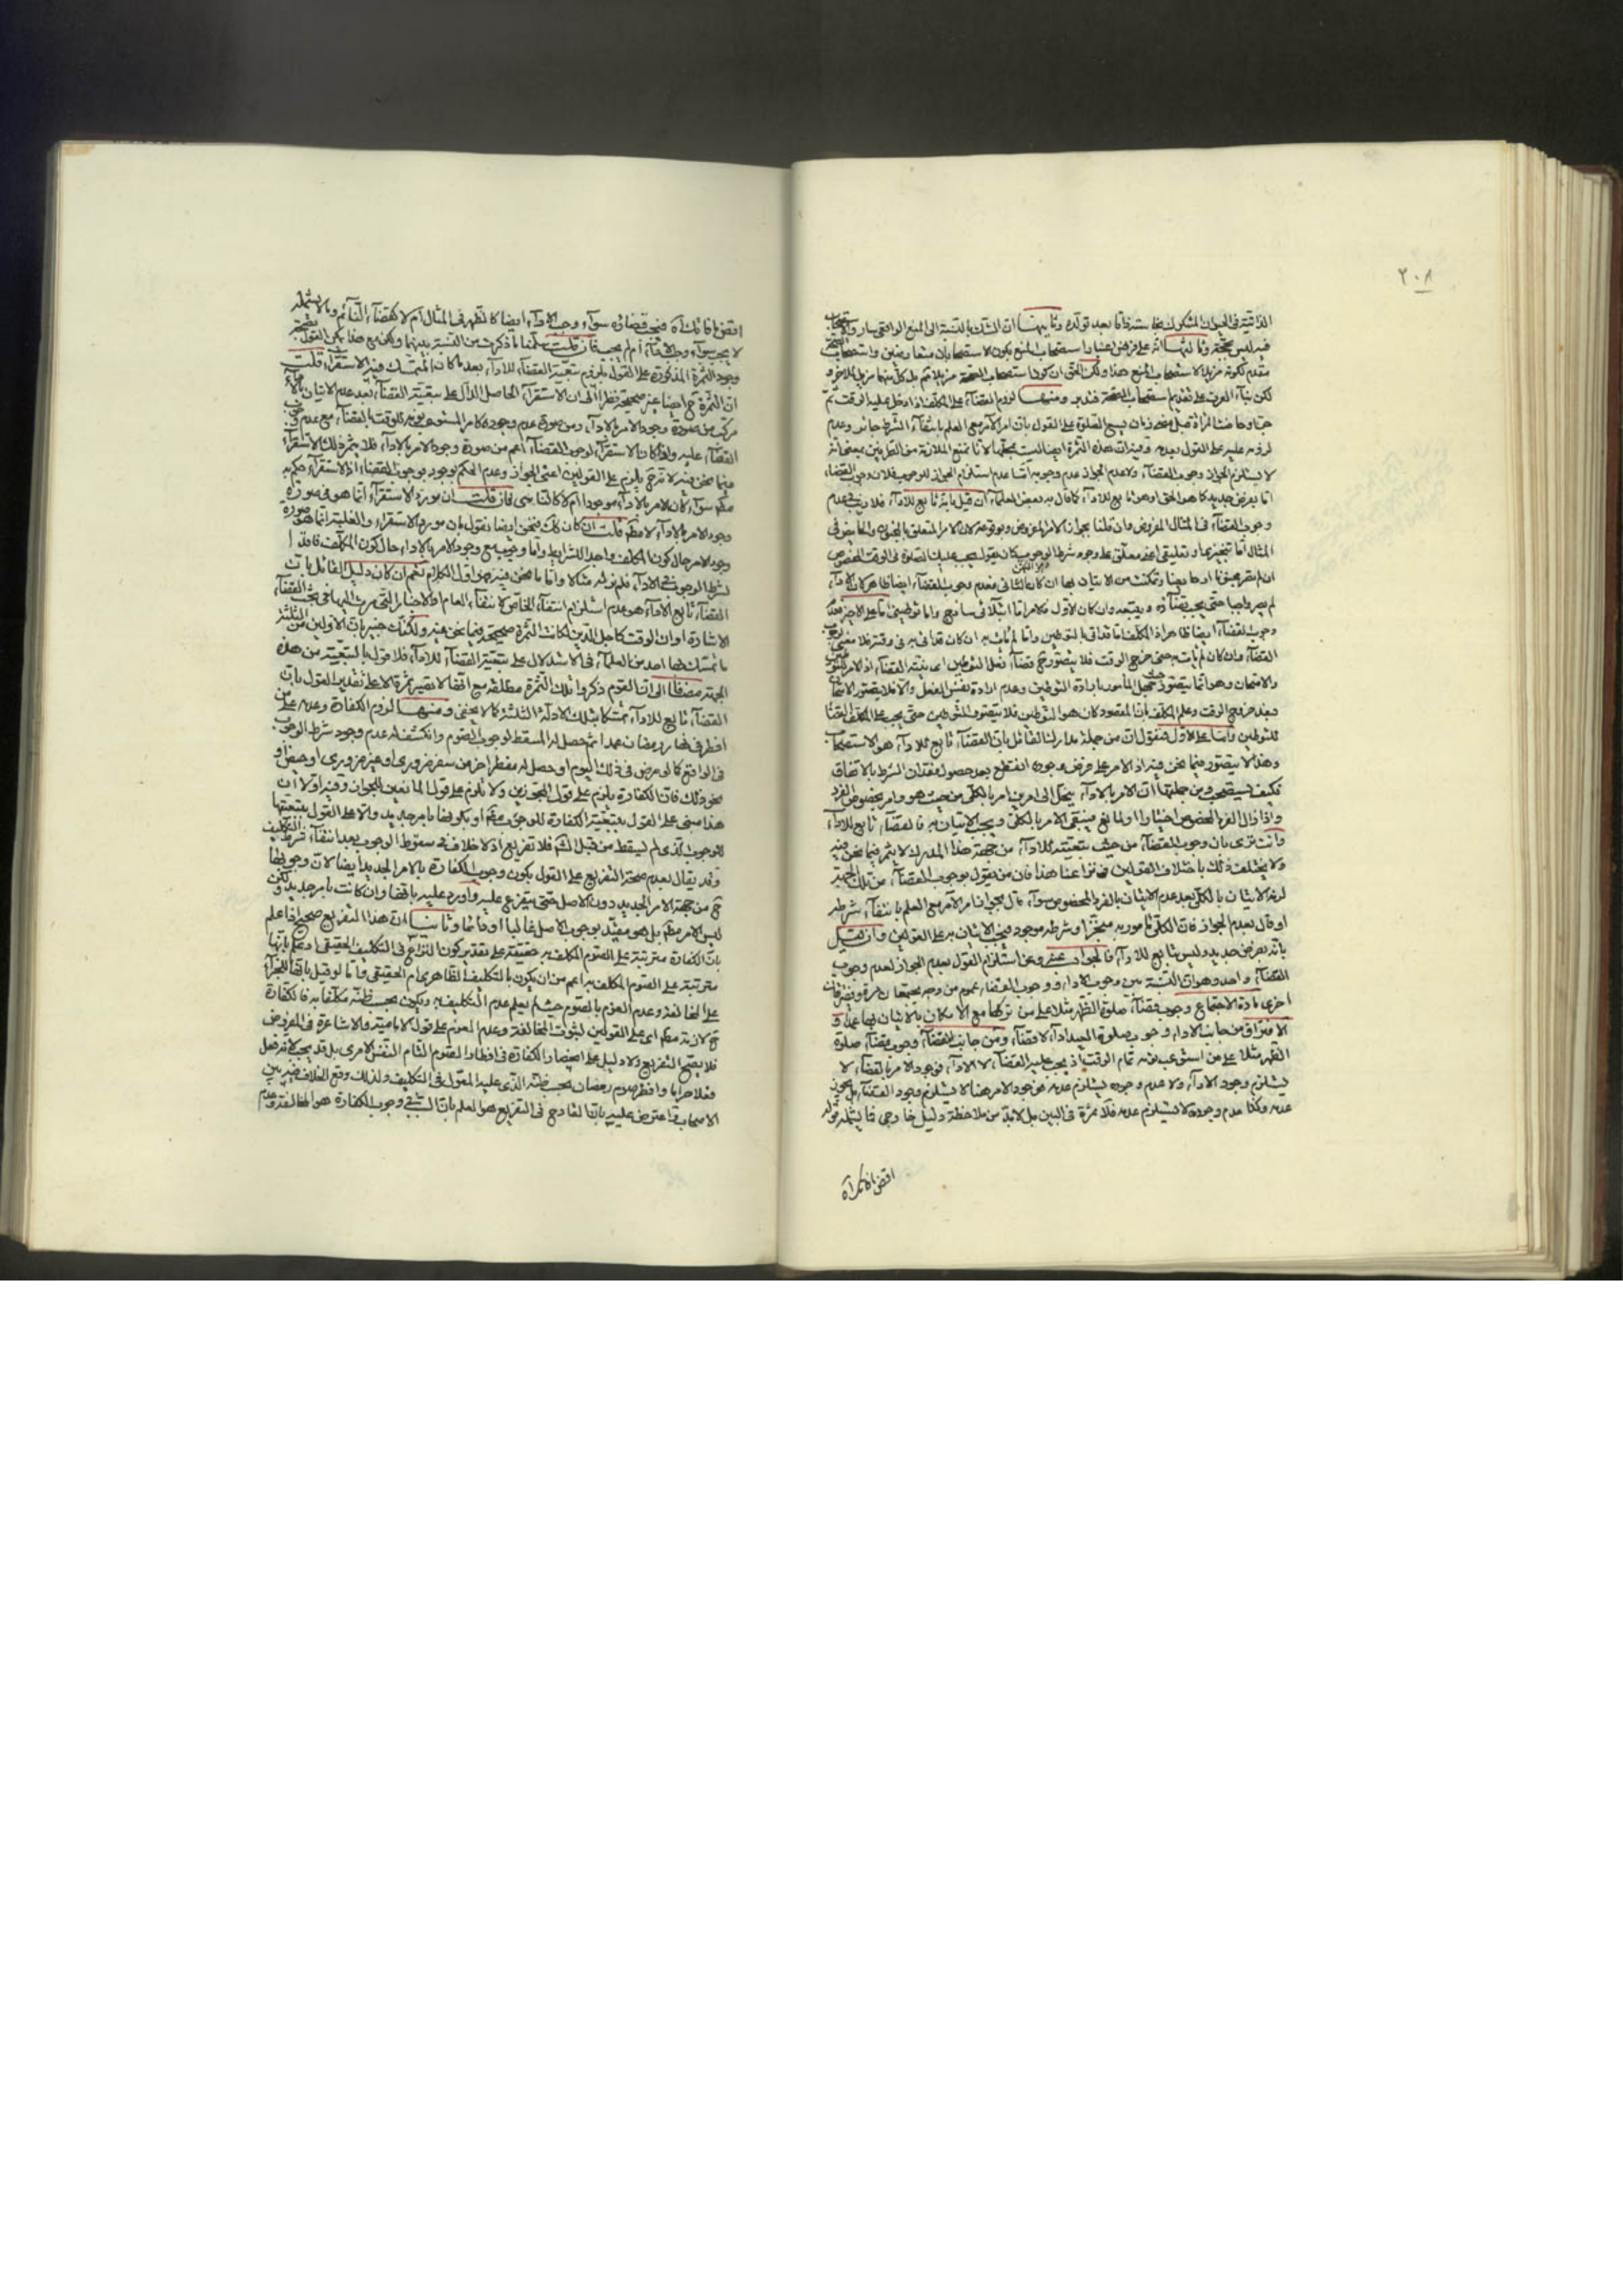 ٢٠٨
الذاتية في الحيوان المشكوك نجاسته ذاتا بعد تولده وثانيها ان الشك بالنسبة الى المنع الواقعي سار والاستصحاب
فيه ليس بحجة وثالثها انه على فرض اعتبار استصحاب المنع يكون الاستصحابان متعارضين واستصحاب الصحة
مقدم لكونه مزيلا لاستصحاب المنع هذا ولكن الحق ان كون استصحاب الصحة مزيلا ثم بل كل منهما مزيل للاخر
لكن بناء العرف على تقديم استصحاب الصحة فتدبر ومنها لزوم القضاء على المكلف اذا دخل عليه الوقت ثم
جن او حاضت المرأة قبل مضي زمان يسع الصلوة على القول بان امر الآمر مع العلم بانتفاء الشرط جائز وعدم
لزومه عليه على القول بعدمه وفيه ان هذه الثمرة ايضا ليست بمحلها لانا نمنع الملازمة من الطرفين بمعنى انه
لا يستلزم الجواز وجوب القضاء ولا عدم الجواز عدم وجوبه اما عدم استلزام الجواز للوجوب فلان وجوب القضاء
اما بفرض جديد كما هو الحق او هو تابع للاداء كما قال به بعض العلماء فان قيل بانه تابع للاداء فلا ريب في عدم
وجوب القضاء في المثال المفروض وان قلنا بجواز الامر المفروض وبوقوعه لان الامر المتعلق بالمجنون والحائض في
المثال اما تنجيزي او تعليقي اعني معلق على وجود شرط الوجوب كان يقول يجب عليك الصلوة في الوقت المخصوص
ان لم تصر مجنونا او حايضا وتمكنت من الاتيان بها فان كان الثاني فعدم وجوب القضاء ايضا ظاهر كان الاداء
لم يصر واجبا حتى يجب قضاؤه ويتبعه وان كان الاول فالامر اما ابتلائي ساذج واما توطيني فاما على الاخير فعدم
وجوب القضاء ايضا ظاهر اذ المكلف اما قد اتى بالتوطين واما لم يأت به ان كان قد اتى به في وقته فلا معنى لوجوب
القضاء وان كان لم يأت به حتى خرج الوقت فلا يتصور ح قضاء فعل التوطين
والامتحان وهو انما يتصور حين جهل المأمور بارادة التوطين وعدم ارادة نفس الفعل والا فلا يتصور الامتحان
فبعد خروج الوقت وعلم المكلف بان المقصود كان هو التوطين فلا يتصور التوطين حتى يجب على المكلف القضاء
للتوطين واما على الاول فنقول ان من جملة مدارك القائل بان القضاء تابع للاداء هو الاستصحاب
وهذا لا يتصور فيما نحن فيه اذ الامر على فرض وجوده انقطع بعد حصول فقدان الشرط بالاتفاق
فكيف يستصحب ومن جملتها ان الامر بالاداء ينحل الى امرين امر بالكلي من حيث هو وامر بخصوص الفرد
واذا زال الفرد المخصوص اختيارا او لمانع فيبقى الامر بالكلي ويجب الاتيان به فالقضاء تابع للاداء
وانت ترى بان وجوب القضاء من حيث تبعيته للاداء من جهة هذا المدرك لا يثمر فيما نحن فيه
ولا يختلف ذلك باختلاف القولين في نزاعنا هذا فان من يقول بوجوب القضاء من تلك الجهة
لزمه الاتيان بالكلي بعد عدم الاتيان بالفرد المخصوص سواء قال بجواز امر الآمر مع العلم بانتفاء شرطه
او قال بعدم الجواز فان الكلي مأمور به منجزا وشرطه موجود فيجب الاتيان به على القولين وان قيل
بانه بفرض جديد وليس تابع للاداء فالجواب عنه وعن استلزام القول بعدم الجواز لعدم وجوب
القضاء واحد وهو ان النسبة بين وجوب الاداء ووجوب القضاء عموم من وجه يجتمعان مرة ويفترقان
اخرى مادة الاجتماع وجوب قضاء صلوة الظهر مثلا على من تركها مع الامكان بالاتيان بها عمدا و
الافتراق من جانب الاداء وجوب صلوة العيد اداء لا قضاء ومن جانب القضاء وجوب قضاء صلوة
الظهر مثلا على من استوعب نومه تمام الوقت اذ يجب عليه القضاء لا الاداء فوجود الامر بالقضاء لا
يستلزم وجود الاداء ولا عدم وجوده يستلزم عدمه فوجود الامر هنا لا يستلزم وجود القضاء بل يجوز
عدمه وكذا عدم وجوده لا يستلزم عدمه فلا ثمرة في البين بل لابد من ملاحظة دليل خارجي فما يشمله قوله
اقض ما فات
اقض ما فاتك اه فيجب قضاؤه سواء وجب الاداء ايضا كالظهر في المثال ام لا كقضاء النائم وما لا يشمله
لا يجب سواء وجب الاداء ام لم يجب فان قلت سلمنا ما ذكرت من النسبة بينهما ولكن مع هذا يمكن القول بصحة
وجود الثمرة المذكورة على القول بلزوم تبعية القضاء للاداء بعد ما كان المتمسك فيه الاستقراء قلت
ان الثمرة ح ايضا غير صحيحة نظرا الى ان الاستقراء الحاصل الدال على تبعية القضاء بعد عدم الاتيان بالاداء
مركب من صورة وجود الامر بالاداء ومن صورة عدم وجوده كما في المستوعب نومه للوقت بالقضاء مع عدم وجوب
القضاء عليه واذا كان الاستقراء لوجوب القضاء اعم من صورة وجود الامر بالاداء فلا يثمر ذلك الاستقراء
فيما نحن فيه لانه ح يلزم على القولين اعني الجواز وعدمه الحكم بوجود وجوب القضاء اذ الاستقراء حكم به
مطلقا سواء كان الامر بالاداء موجودا ام لا كالناسي فان قلت ان مورد الاستقراء انما هو في صورة
وجود الامر بالاداء لا مطم قلت ان كان كك فنحن ايضا نقول بان مورد الاستقراء والغلبة انما هو صورة
وجود الامر حال كون المكلف واجدا للشرائط واما وجوبه مع وجود الامر بالاداء حال كون المكلف فاقدا
لشرط الوجوب في الاداء فلم نر له مثالا واما ما نحن فيه فهو اول الكلام نعم ان كان دليل القائل بان
القضاء تابع للاداء هو عدم استلزام انتفاء الخاص لانتفاء العام او الاخبار التي مرت اليها في بحث القضاء
الاشارة او ان الوقت كاجل الدين لكانت الثمرة صحيحة فيما نحن فيه ولكنك خبير بان الاولين من الثلثة
ما تمسك بهما احد من العلماء في الاستدلال على تبعية القضاء للاداء فلا قول بالتبعية من هذه
الجهة مضافا الى ان القوم ذكروا تلك الثمرة مطلقة مع انها لا تصير ثمرة الا على تقدير القول بان
القضاء تابع للاداء تمسكا بتلك الادلة الثلثة كما لا يخفى ومنها لزوم الكفارة وعدمه على من
افطر في نهار رمضان عمدا ثم حصل له المسقط لوجوب الصوم وانكشف له عدم وجود شرط الوجوب
في الواقع كما لو مرض في ذلك اليوم او حصل له مفطر اخر من سفر ضروري او غير ضروري او حيض او
نحو ذلك فان الكفارة يلزم على قول المجوزين ولا يلزم على قول المانعين للجواز وفيه اولا ان
هذا مبني على القول بتبعية الكفارة للوجوب مطم او بكونها بامر جديد والا على القول بتبعيتها
للوجوب الذي لم يسقط من قبل الله فلا تفريع اذ لا خلاف في سقوط الوجوب بعد انتفاء شرط التكليف
وقد يقال بعدم صحة التفريع على القول بكون وجوب الكفارة بالامر الجديد ايضا لان وجوبها
ح من جهة الامر الجديد دون الاصل حتى يتفرع عليه واورد عليه بانها وان كانت بامر جديد لكن
ليس الامر مطم بل هو مقيد بوجوب الاصل غالبا او دائما وثانيا ان هذا التفريع صحيح اذا علم
بان الكفارة مترتبة على الصوم المكلف به حقيقة على تقدير كون النزاع في التكليف الحقيقي او علم بانها
مترتبة على الصوم المكلف به اعم من ان يكون بالتكليف الظاهري ام الحقيقي واما لو قيل بانها للجرأة
على المخالفة وعدم العزم بالصوم حيث لم يعلم عدم التكليف به ويكون بحسب ظنه مكلفا به فالكفارة
ح لازمة مطم اي على القولين لثبوت المخالفة وعدم العزم على قول الامامية والاشاعرة في المفروض
فلا يصح التفريع ولا دليل على انحصار الكفارة في افطار الصوم التام النفس الامري بل قد يجب لامر فعل
فعلا حراما وافطر صوم رمضان بحسب ظنه الذي عليه المعول في التكليف ولذلك وقع الخلاف فيه بين
الاصحاب واعترض عليه بان القادح في التفريع هو العلم بان السبب في وجوب الكفارة هو المخالفة وعدم